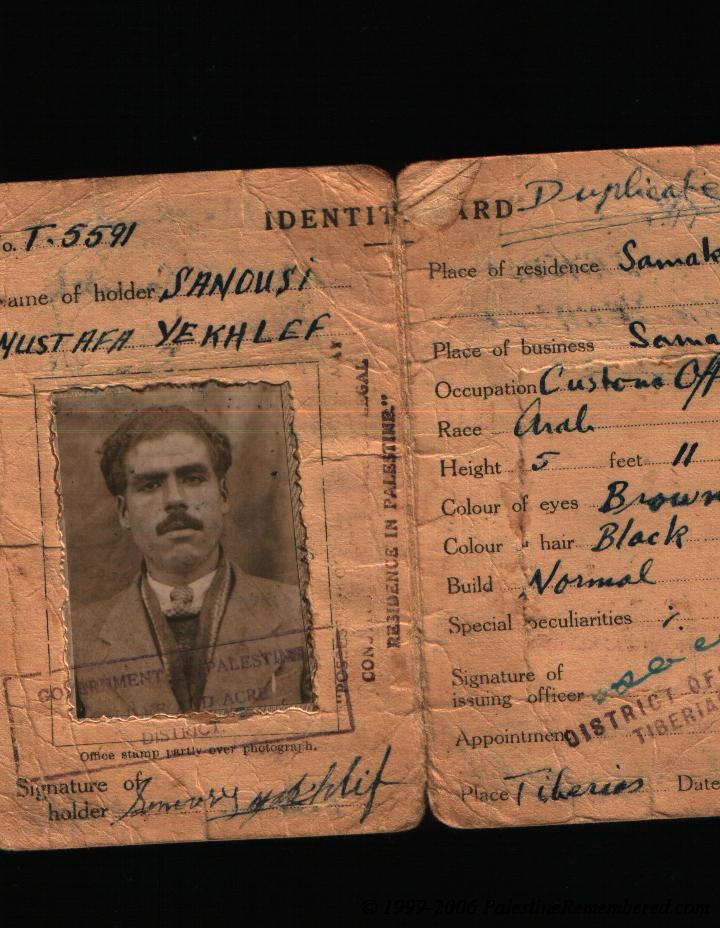 o. T.5591
IDENTIT
ame of holder SANOUSi
MUSTAFA YEKHLEF
LEGAL
RESIDENCE IN PALESTINE."
GO ERNMENT PALESTINE
LEE AND ACRE
DISTRICT.
Office stamp partly over photograph.
Signature of
holder
ARD Duplicate
Place of residence Samak
Place of business Sama
Occupation Customs Off
Race Arab
Height 5 feet 11
Colour of eyes Brown
Colour " hair Black
Build Normal
Special peculiarities
Signature of
issuing officer
Appointment
DISTRICT OF
TIBERIA
Place Tiberias Date
© 1999-2006 PalestineRemembered.com